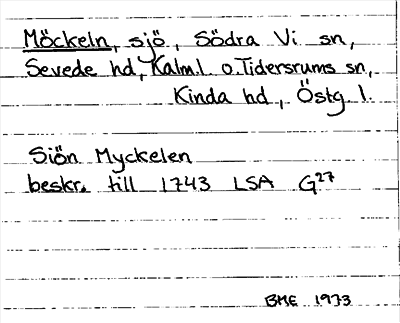 Möckeln, sjö, Södra Vi sn,
Sevede hd, Kalm.l. o. Tidersrums sn,
Kinda hd, Östg. l.
Siön Myckelen
beskr. till 1743 LSA G27
BME 1973